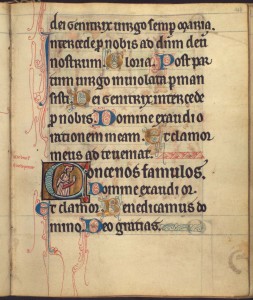 dei genitrix uirgo semp maria.
Intercede p nobis ad dnm deū
nostrum. Gloria. Post par
tum uirgo inuiolata pman
sisti. Dei genitrix intercede
p nobis. Domine exaudi o
rationem meam. Et clamor
meus ad te ueniat.
Concenos famulos.
Domine exaudi or
Et clamor. Benedicamus do
mino. Deo gratias.